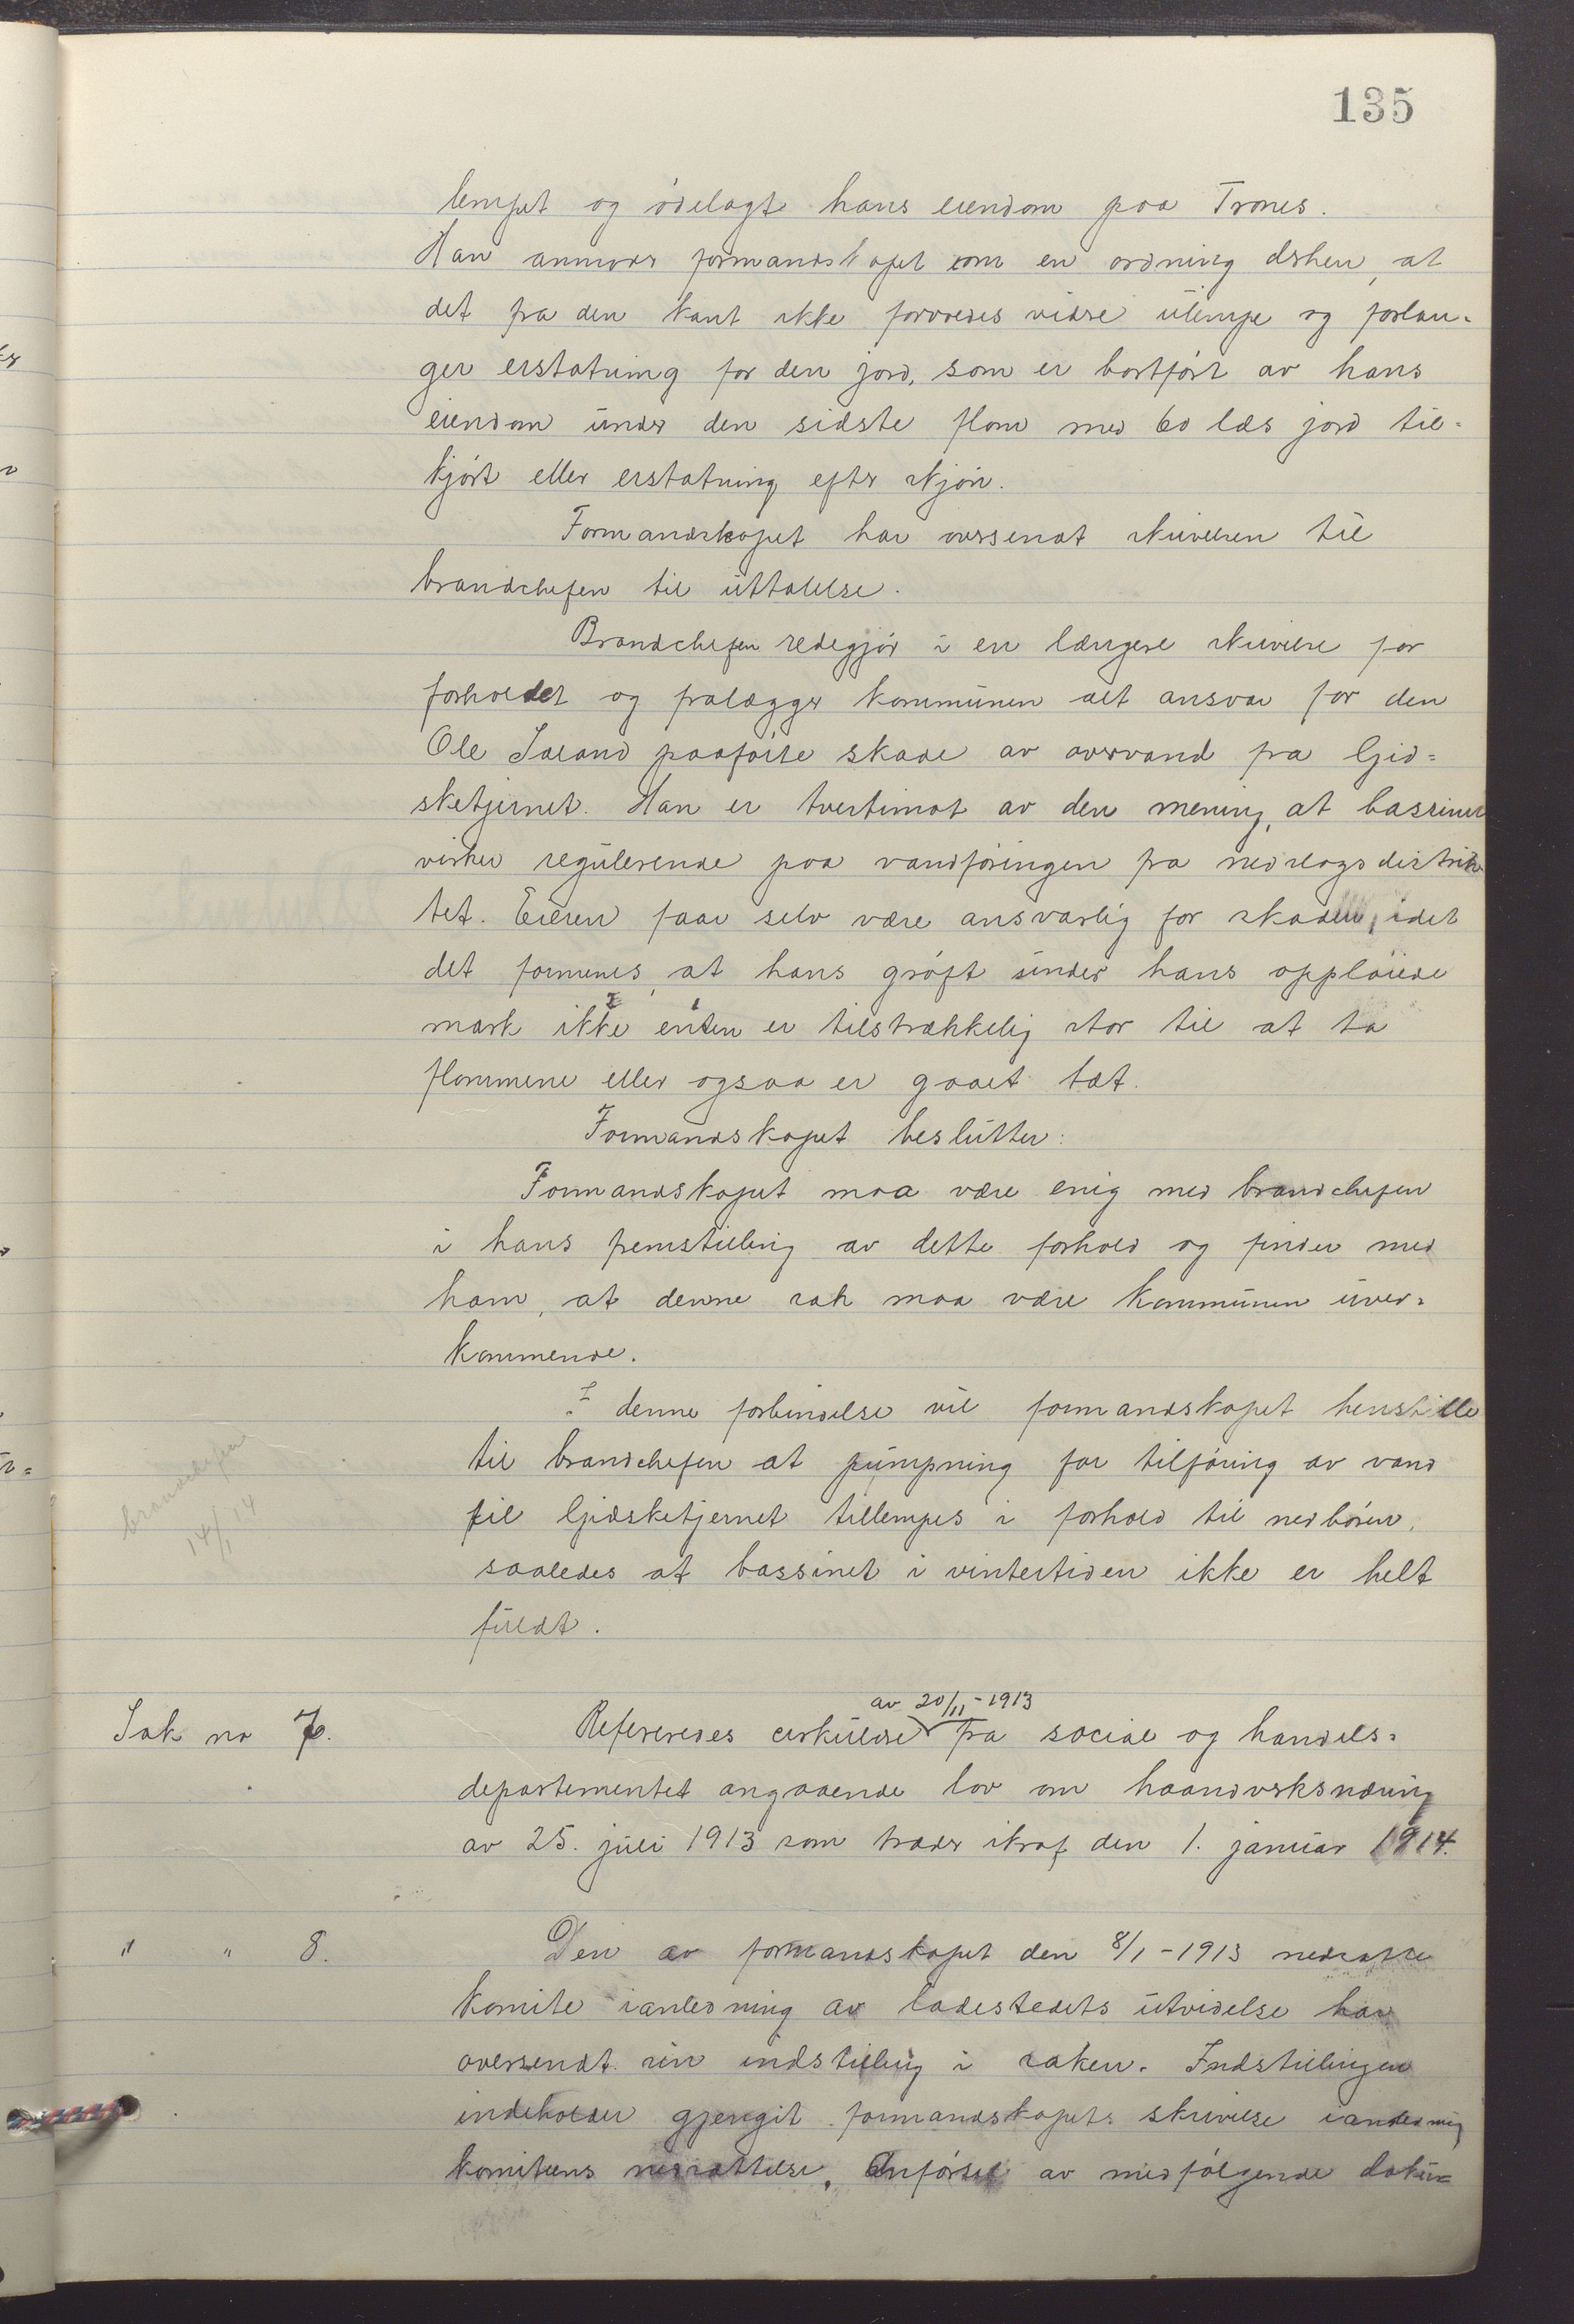 135
lempet og ödelagt hans eiendom paa Trones.
Han anmoder formandskapet om en ordning derhen, at
det fra den kant ikke forvoldes videre ulempe og forlan-
ger erstatning for den jord, som er bortført av hans
eiendom under den sidste flom med 60 læs jord til-
kjørt eller erstatning efter skjøn.
Formandskapet har oversendt skrivelsen til
brandchefen til uttalelse.
Brandchefen redegjør i en længere skrivelse for
forholdet og fralægger kommunen alt ansvar for den
Ole Saland paaførte skade av overvand fra Gjid-
sketjernet. Han er tvertimot av den mening, at bassinet
virker regulerende paa vandføringen fra nedslagsdistrik-
tet. Eieren faar selv være ansvarlig for skaden, idet
det formenes, at hans grøft under hans oppløiede
mark ikke 2 enten 1 er tilstrækkelig stor til at ta
flommene eller ogsaa er gaaet tæt.
Formandskapet beslutter:
Formandskapet maa være enig med brandchefen
i hans fremstilling av dette forhold og finder med
ham, at denne sak maa være kommunen uved-
kommende.
I denne forbindelse vil formandskapet henstille
til brandchefen at pumpning for tilføring av vand
til Gjidsketjernet tillempes i forhold til nedbøren,
saaledes at bassinet i vintertiden ikke er helt
fuldt.
brandchefen
14/1 14
av 20/11-1913
Sak no 7. Refereredes cirkulære fra social og handels-
departementet angaaende lov om haandverksnæring
av 25. juli 1913 som træder ikraft den 1. januar 1914.
" " 8. Den av formandskapet den 8/1-1913 nedsatte
komite ianledning av ladestedets utvidelse har
oversendt sin indstilling i saken. Indstillingen
indeholder gjengit formandskapets skrivelse ianledning
komiteens nedsættelse, Anførsel av medfølgende doku-